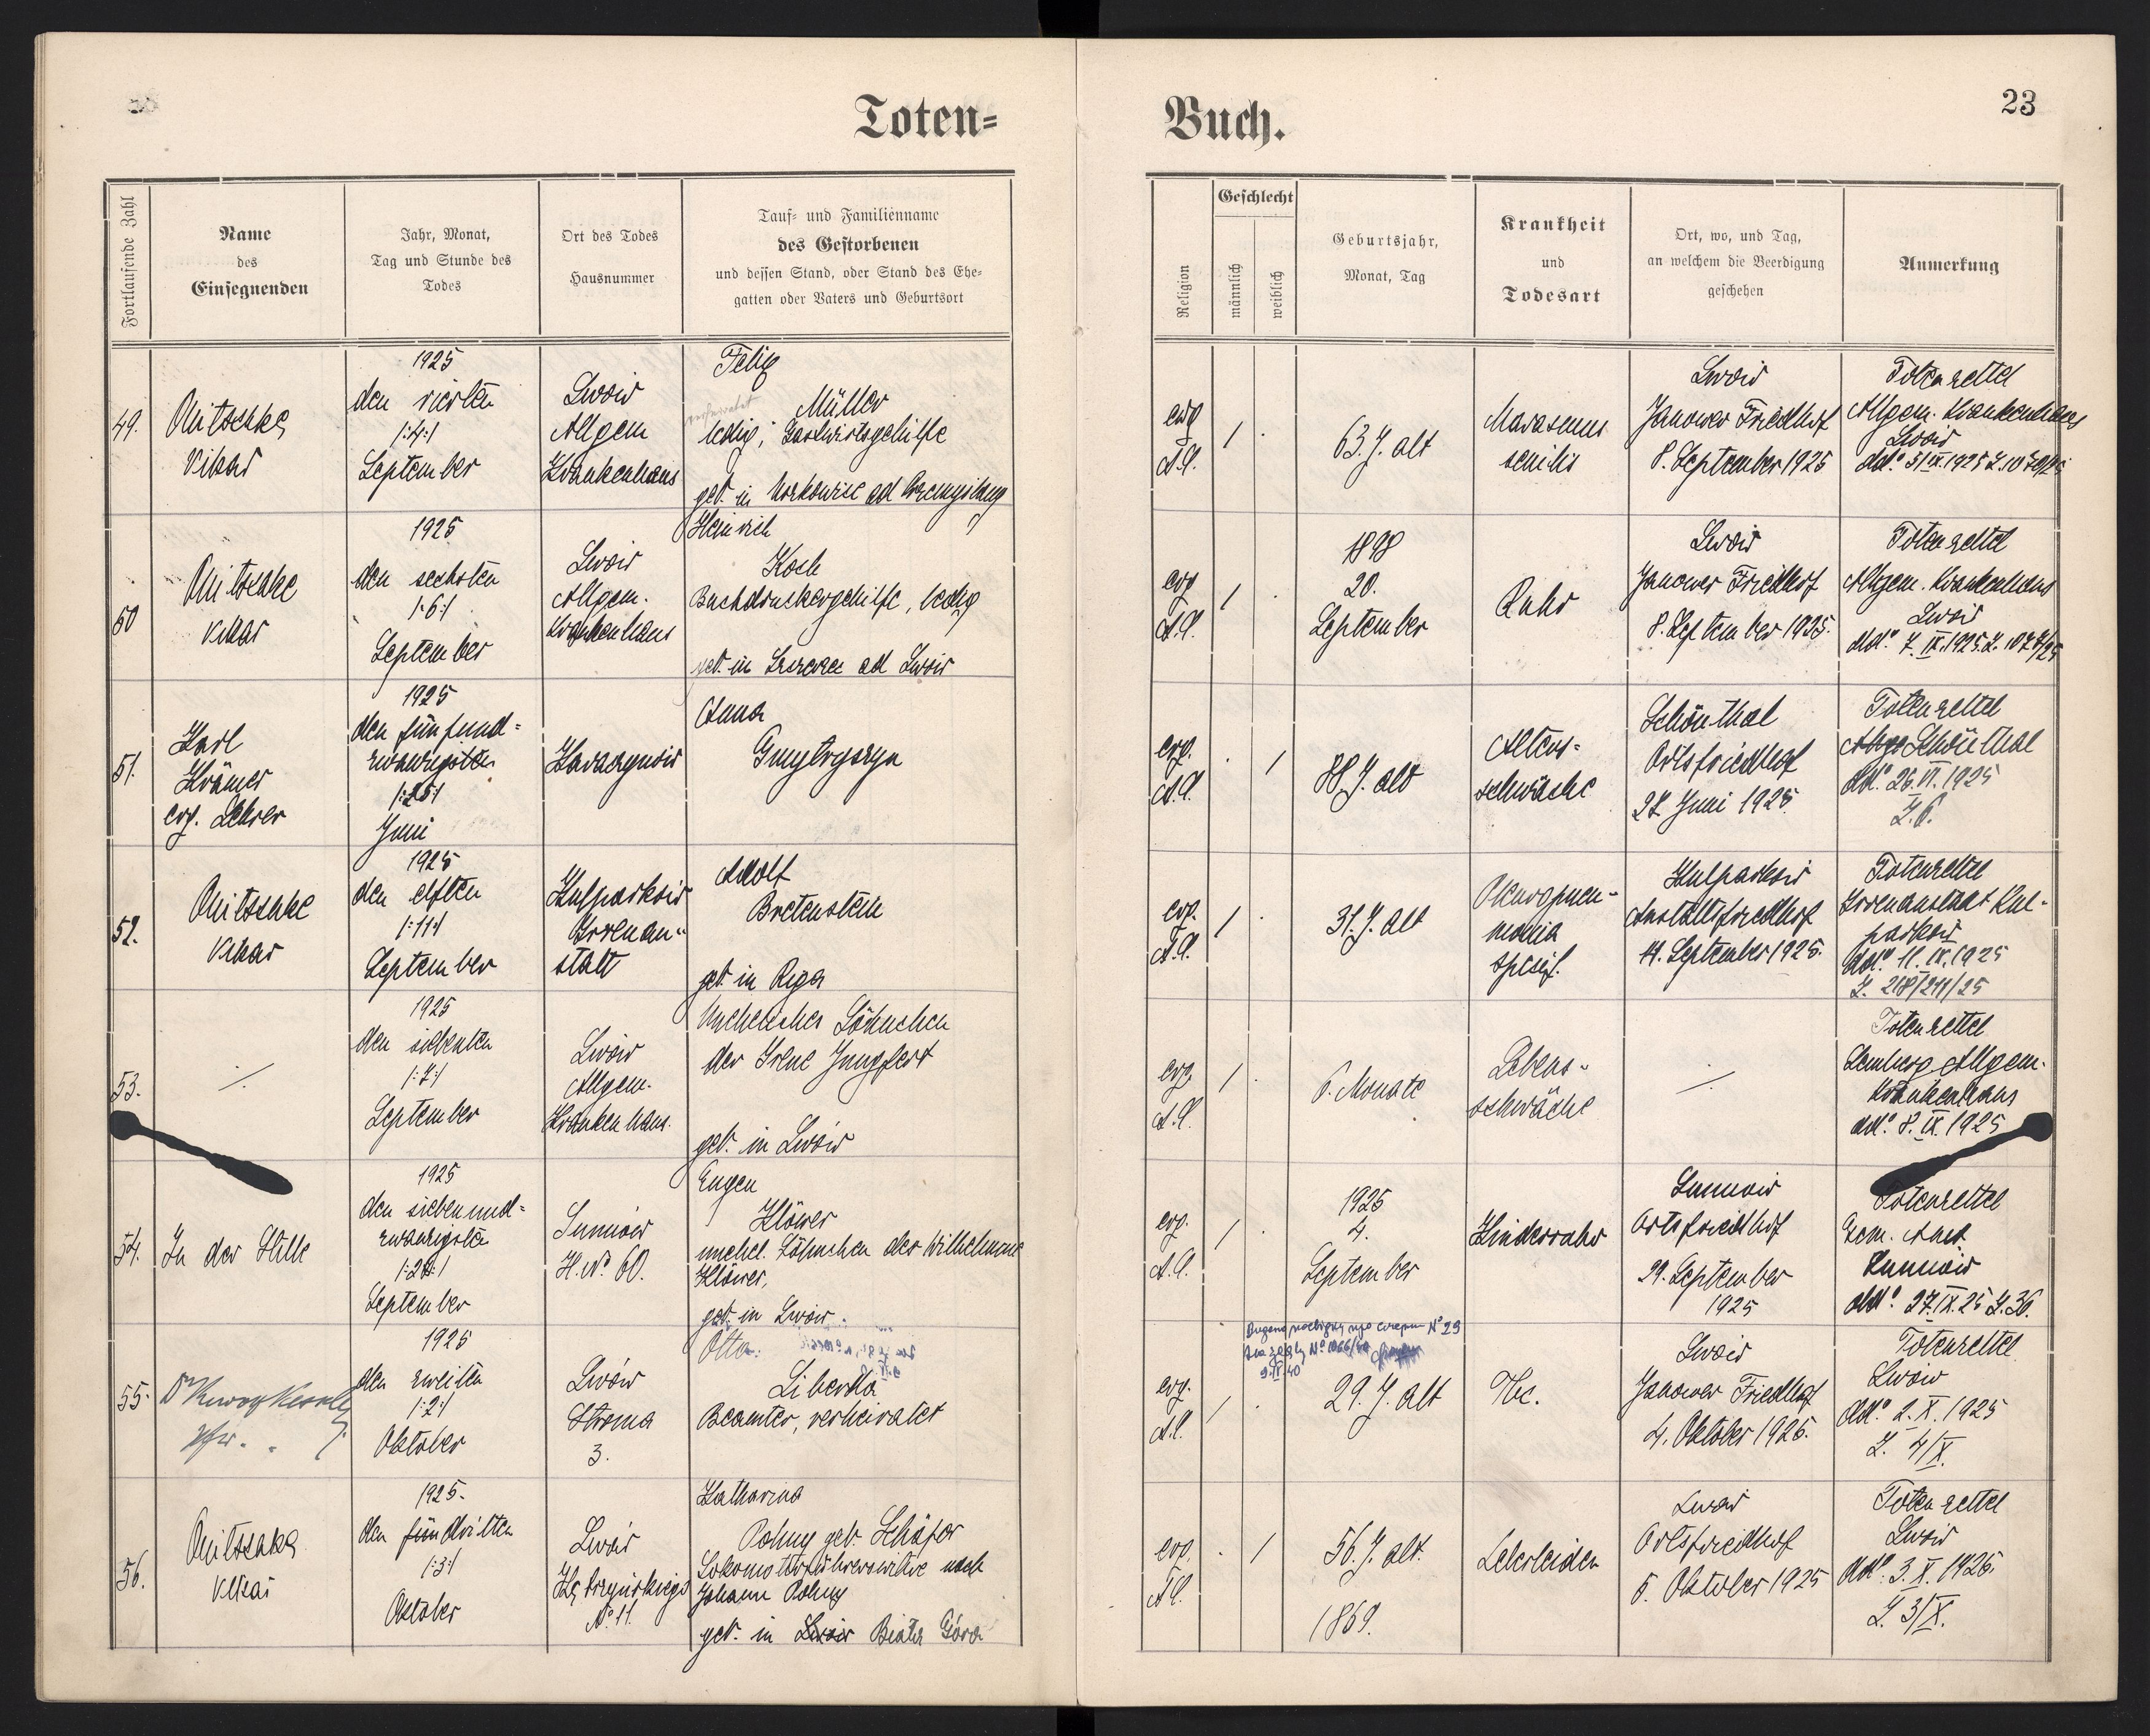 Toten=
Buch.
23
Fortlaufende Zahl
Name
des
Einsegnenden
Jahr, Monat,
Tag und Stunde des
Todes
Ort des Todes
Hausnummer
Tauf= und Familienname
des Gestorbenen
und dessen Stand, oder Stand des Ehe=
gatten oder Vaters und Geburtsort
Religion
Geschlecht
männlich
weiblich
Geburtsjahr,
Monat, Tag
Krankheit
und
Todesart
Ort, wo, und Tag,
an welchem die Beerdigung
geschehen
Anmerkung
49.
Nitschke
Vikar
1925
den vierten
/:4:/
September
Lwów
Allgem
Krankenhaus
Felix
Müller
verheiratet
ledig; Gastwirtsgehilfe
geb. in
evg
A.C.
/
.
63. J. alt
Marasmus
senilis
Lwów
Janower Friedhof
8. September 1925
Totenzettel
Allgem. Krankenhaus
Lwów
50
Nitschke
Vikar
1925
den sechsten
/:6:/
September
Lwów
Allgem.
Krankenhaus
Heinrich
Koch
Buchdruckergehilfe, ledig
geb. in ad Lwów
evg
A.C.
/
.
1898
20.
September
Ruhr
Lwów
Janower Friedhof
8. September 1925.
Totenzettel
Allgem. Krankenhaus
Lwów
ddo. 7. IX. 1925. Z.
51.
Karl
Krämer
evg. Lehrer
1925
den fünfund=
zwanzigsten
/:25:/
Juni
Anna
Gmytryszyn
evg.
A.C.
.
/
88 J. alt
Alters-
schwäche
Schönthal
Ortsfriedhof
27 Juni 1925
Totenzettel
Schönthal
ddo. 26. VI. 1925
Z. 6.
52.
Nitschke
Vikar
1925
den elften
/:11:/
September
Kulparków
Irrenan-
stalt
Adolf
Bretenstein
geb. in Riga
evg.
A.C.
/
.
31. J. alt
Pleuropneu-
monia
Kulparków
Anstaltsfriedhof
14. September 1925.
Totenzettel
Irrenanstalt Kul-
parków
ddo. 11. IX. 1925
53.
./.
1925
den siebenten
/:7:/
September
Lwów
Allgem.
Krankenhaus.
Uneheliches Söhnchen
der Irene Jungfert
geb. in Lwów
evg
A.C.
/
.
6. Monate
Lebens-
schwäche
./.
Totenzettel
Lemberg Allgem.
Krankenhaus
ddo. 8. IX. 1925
54.
In der Stille
1925
den siebenund=
zwanzigsten
/:27:/
September
H. No. 60.
Eugen
Klöwer
unehel. Söhnchen der Wilhelmine
Klöwer,
geb. in Lwów.
evg.
A.C.
/
.
1925
4.
September
Kinderruhr
Ortsfriedhof
29. September
1925
Totenzettel
Gem. Amt
ddo. 27. IX. 25 Z. 36.
55.
Dr Kesselring
Pfr.
1925
den zweiten
/:2:/
Oktober
Lwów
Stroma
3.
Otto
Liberda
Beamter, verheiratet
No 29
9.IV.40
evg.
A.C.
/
.
29. J. alt
Tbc.
Lwów
Janower Friedhof
4. Oktober 1925.
Totenzettel
Lwów
ddo. 2. X. 1925
Z. 4/X.
56.
Nitschke
Vikar
1925.
den fün dritten
/:3:/
Oktober
Lwów
No. 11.
Katharina
Pohny geb. Schäfer
Lokomotivführerswitwe nach
Johann Pohny
geb. in Lwów Biała Góra
evg.
A.C.
.
/
56. J. alt.
1869.
Leberleiden
Lwów
Ortsfriedhof
5. Oktober 1925
Totenzettel
Lwów
ddo. 3. X. 1925
Z. 3/X.